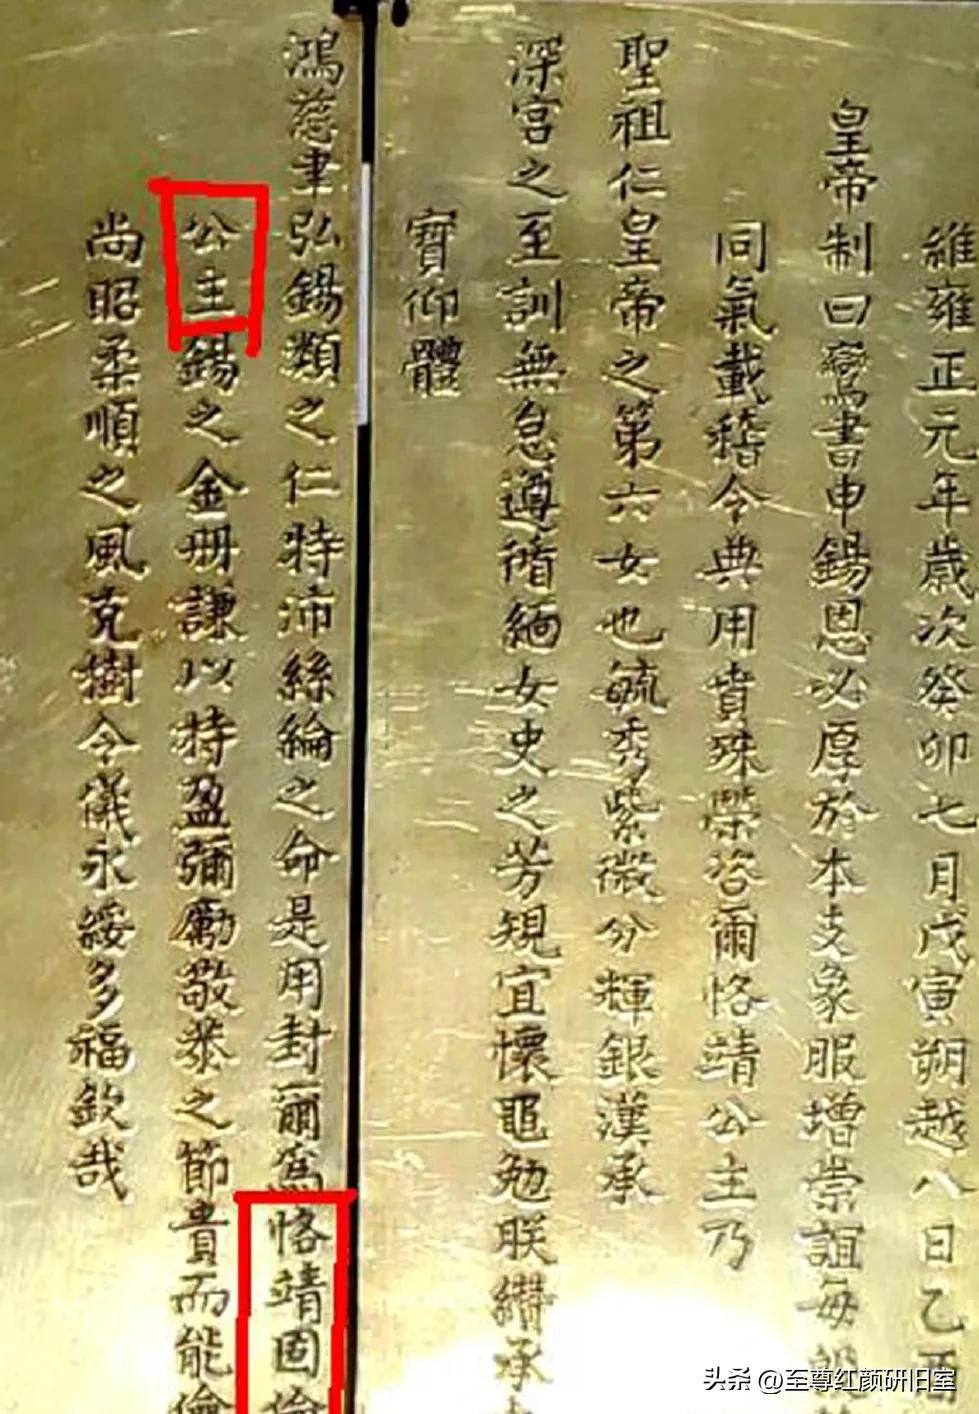 維雍正元年歲次癸卯七月戊寅朔越八日乙酉
皇帝制曰鸞書申錫恩必厚於本支象服增崇誼每
同氣載稽令典用賁殊榮咨爾恪靖公主乃
聖祖仁皇帝之第六女也毓秀紫微分輝銀漢承
深宮之至訓無怠遵循緬女史之芳規宜懷黽勉朕纘承
寶仰體
鴻慈聿弘錫類之仁特沛絲綸之命是用封爾為恪靖固倫
公主錫之金冊謙以持盈彌勵敬恭之節貴而能儉
尚昭柔順之風克樹令儀永綏多福欽哉
头条 @至尊红颜研旧室